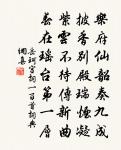 樂府仙韶奏九成
披香別殿瑞煙凝
紫雲不待傳新曲
春在瑤台第一層
岳珂宮詞一百首詞典
網集